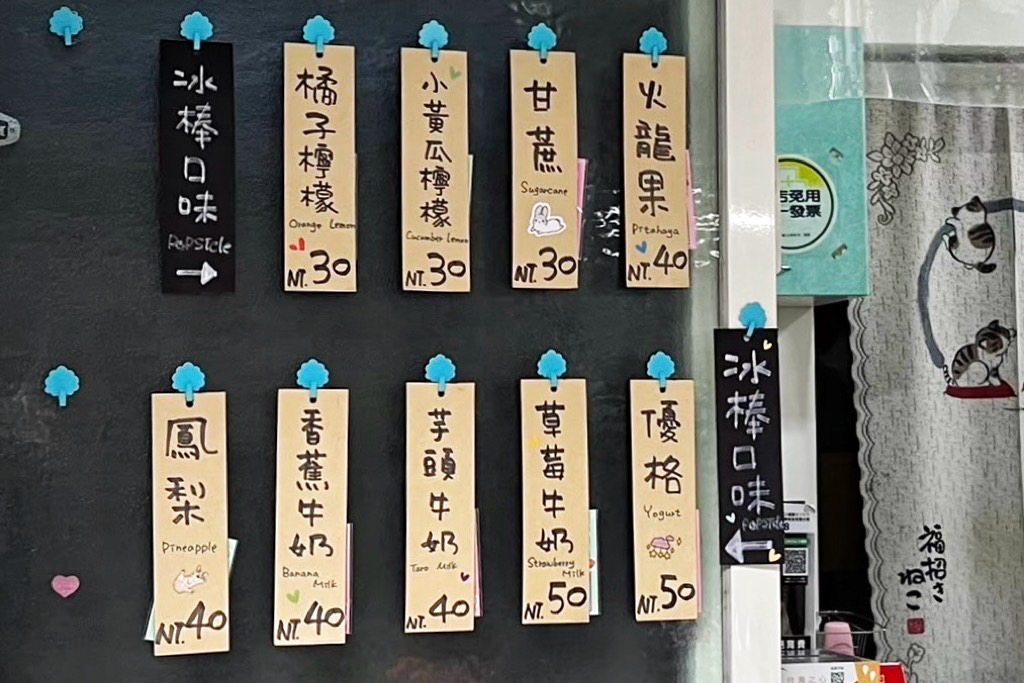 冰棒口味
POPSICle
→
橘子檸檬
Orange Lemon
NT.30
小黃瓜檸檬
Cucumber Lemon
NT.30
甘蔗
Sugarcane
NT.30
火龍果
Pitahaya
NT.40
免用
發票
鳳梨
Pineapple
NT.40
香蕉牛奶
Banana
Milk
NT.40
芋頭牛奶
Taro Milk
NT.40
草莓牛奶
Strawberry
Milk
NT.50
優格
Yogurt
NT.50
冰棒口味
POPSICle
←
福招き
ねこ